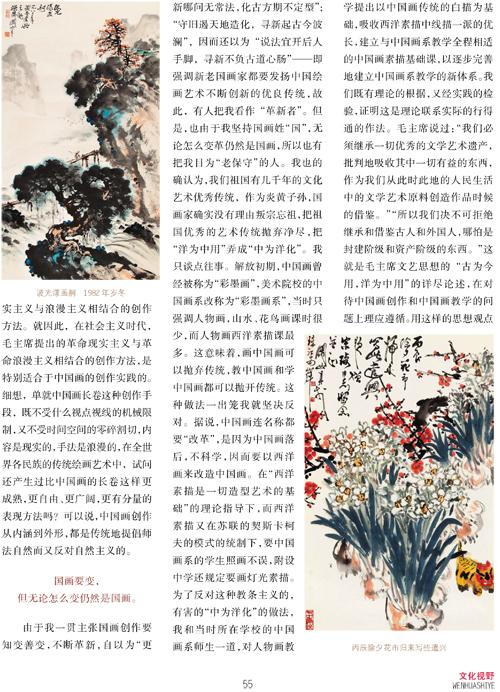 波光潭画嗣 1982年岁冬
实主义与浪漫主义相结合的创作
方法。就因此，在社会主义时代，
毛主席提出的革命现实主义与革
命浪漫主义相结合的创作方法，是
特别适合于中国画的创作实践的。
细想，单就中国画长卷这种创作手
段，既不受什么视点视线的机械限
制，又不受时间空间的零碎割切，内
容是现实的，手法是浪漫的，在全世
界各民族的传统绘画艺术中，试问
还产生过比中国画的长卷这样更
成熟，更自由、更广阔，更有分量的
表现方法吗？可以说，中国画创作
从内涵到外形，都是传统地提倡师
法自然而又反对自然主义的。
国画要变，
但无论怎么变仍然是国画。
由于我一贯主张国画创作要
知变善变，不断革新，自以为“更
新哪问无常法，化古方期不定型”；
“守旧遏天地造化，寻新起古今波
澜”，因而还以为“说法宜开后人
手脚，寻新不负古道心肠”——即
强调新老国画家都要发扬中国绘
画艺术不断创新的优良传统，故
此，有人把我看作“革新者”。但
是，也由于我坚持国画姓“国”，无
论怎么变革仍然是国画，所以也有
把我目为“老保守”的人。我也的
确认为，我们祖国有几千年的文化
艺术优秀传统，作为炎黄子孙，国
画家确实没有理由叛宗忘祖，把祖
国优秀的艺术传统抛弃净尽，把
“洋为中用”弄成“中为洋化”。我
只谈点往事。解放初期，中国画曾
经被称为“彩墨画”，美术院校的中
国画系改称为“彩墨画系”，当时只
强调人物画，山水、花鸟画课时很
少，而人物画西洋素描课最
多。这意味着，画中国画可
以抛弃传统，教中国画和学
中国画都可以抛开传统。这
种做法一出笼我就坚决反
对。据说，中国画连名称都
要“改革”，是因为中国画落
后，不科学，因而要以西洋
画来改造中国画。在“西洋
素描是一切造型艺术的基
础”的理论指导下，而西洋
素描又在苏联的契斯卡柯
夫的模式的统制下，要中国
画系的学生照画不误，附设
中学还规定要画灯光素描。
为了反对这种教条主义的，
有害的“中为洋化”的做法，
我和当时所在学校的中国
画系师生一道，对人物画教
学提出以中国画传统的白描为基
础，吸收西洋素描中线描一派的优
长，建立与中国画系教学全程相适
的中国画素描基础课，以逐步完善
地建立中国画系教学的新体系。我
们既有理论的根据，又经实践的检
验，证明这是理论联系实际的行得
通的作法。毛主席说过：“我们必
须继承一切优秀的文学艺术遗产，
批判地吸收其中一切有益的东西，
作为我们从此时此地的人民生活
中的文学艺术原料创造作品时候
的借鉴。”“所以我们决不可拒绝
继承和借鉴古人和外国人，哪怕是
封建阶级和资产阶级的东西。”这
就是毛主席文艺思想的“古为今
用，洋为中用”的详尽论述，在对
待中国画创作和中国画教学的问
题上理应遵循。用这样的思想观点
丙辰除夕花市归来写些遣兴
文化视野
WENHUASHIYE
55